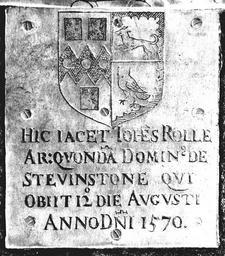 HIC IACET IOHĒS ROLLE
AR: QVONDĀ DOMIN⁹ DE
STEVINSTONE QVI
OBIIT 12° DIE AVGVSTI
ANNO DÑI 1570.